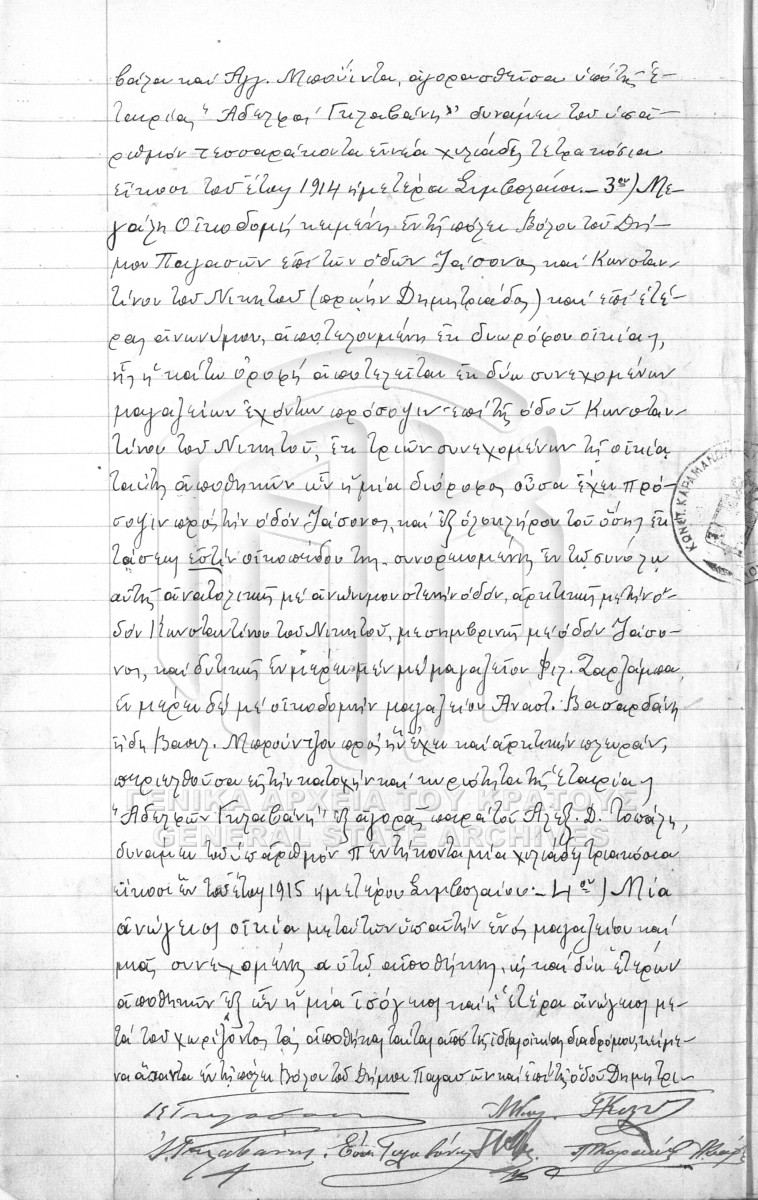 βάζα καὶ Ἀγγ. Μπούϊντα, ἀγορασθεῖσα ὑπὸ τῆς Ἑ-
ταιρίας "Ἀδελφοὶ Γκλαβάνη" δυνάμει τοῦ ὑπ' ἀ-
ριθμὸν τεσσαράκοντα ἐννέα χιλιάδες τετρακόσια
εἴκοσι τοῦ ἔτους 1914 ἡμετέρου Συμβολαίου.- 3ον) Με-
γάλη Οἰκοδομὴ κειμένη ἐν τῇ πόλει Βόλου τοῦ Δή-
μου Παγασῶν ἐπὶ τῶν ὁδῶν Ἰάσονος καὶ Κωνσταν-
τίνου τοῦ Νικητοῦ (πρώην Δημητριάδος) καὶ ἐπὶ ἑτέ-
ρας ἀνωνύμου, ἀποτελουμένη ἐκ διωρόφου οἰκίας,
ἧς ἡ κάτω ὀροφὴ ἀποτελεῖται ἐκ δύω συνεχομένων
μαγαζείων ἐχόντων πρόσοψιν ἐπὶ τῆς ὁδοῦ Κωνσταν-
τίνου τοῦ Νικητοῦ, ἐκ τριῶν συνεχομένων τῇ οἰκίᾳ
ταύτῃ ἀποθηκῶν ὧν ἡ μία διόροφος οὖσα ἔχει πρό-
σοψιν πρὸς τὴν ὁδὸν Ἰάσονος, καὶ ἐξ ὁλοκλήρου τοῦ ὅσης ἐκ
τάσεως ἐστὶν οἰκοπέδου της, συνορευομένη ἐν τῷ συνόλῳ
αὐτῆς ἀνατολικῶς μὲ ἀνώνυμον στενὴν ὁδόν, ἀρκτικῶς μὲ τὴν ὁ-
δὸν Κωνσταντίνου τοῦ Νικητοῦ, μεσημβρινῶς μὲ ὁδὸν Ἰάσο-
νος, καὶ δυτικῶς ἐν μέρει μὲν μὲ μαγαζεῖον Φιλ. Ζαρζάμπα,
ἐν μέρει δὲ μὲ οἰκοδομὴν μαγαζείου Ἀναστ. Βασαρδάνη
ἤδη Βασιλ. Μπρούντζου πρὸς ἣν ἔχει καὶ ἀρκτικὴν πλευράν,
περιελθοῦσα εἰς τὴν κατοχὴν καὶ κυριότητα τῆς Ἑταιρίας
"Ἀδελφῶν Γκλαβάνη" ἐξ ἀγορᾶς παρὰ τοῦ Ἀλεξ. Δ. Τοπάλη,
δυνάμει τοῦ ὑπ' ἀριθμὸν πεντήκοντα μία χιλιάδες τριακόσια
εἴκοσι ἓν τοῦ ἔτους 1915 ἡμετέρου Συμβολαίου.- 4ον) Μία
ἀνώγειος οἰκία μετὰ τῶν ὑπ' αὐτὴν ἑνὸς μαγαζείου καὶ
μιᾶς συνεχομένης αὐτῷ ἀποθήκης, ὡς καὶ δύω ἑτέρων
ἀποθηκῶν ἐξ ὧν ἡ μία ἰσόγειος καὶ ἡ ἑτέρα ἀνώγειος με-
τὰ τοῦ χωρίζοντος τὰς ἀποθήκας ταύτας ἀπὸ τῆς ἰδίας οἰκίας διαδρόμου, κείμε-
να ἅπαντα ἐν τῇ πόλει Βόλου τοῦ Δήμου Παγασῶν καὶ ἐπὶ τῆς ὁδοῦ Δημητρι-
ΚΩΝΣΤ. ΚΑΡΑΜΑΝΟ
ΓΕΝΙΚΑ ΑΡΧΕΙΑ ΤΟΥ ΚΡΑΤΟΥΣ
GENERAL STATE ARCHIVES